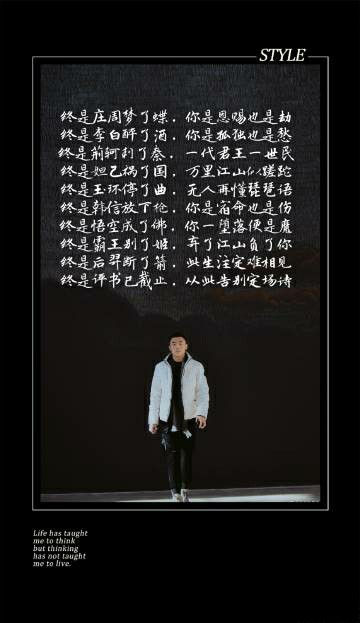 STYLE
终是庄周梦了蝶，你是恩赐也是劫
终是李白醉了酒，你是孤独也是愁
终是荆轲刺了秦，一代君王一世民
终是妲己祸了国，万里江山似蹉跎
终是王环停了曲，无人再懂琵琶语
终是韩信放下枪，你是宿命也是伤
终是悟空成了佛，你一堕落便是魔
终是霸王别了姬，弃了江山负了你
终是后羿断了箭，此生注定难相见
终是评书已截止，从此告别定场诗
Life has taught
me to think
but thinking
has not taught
me to live.